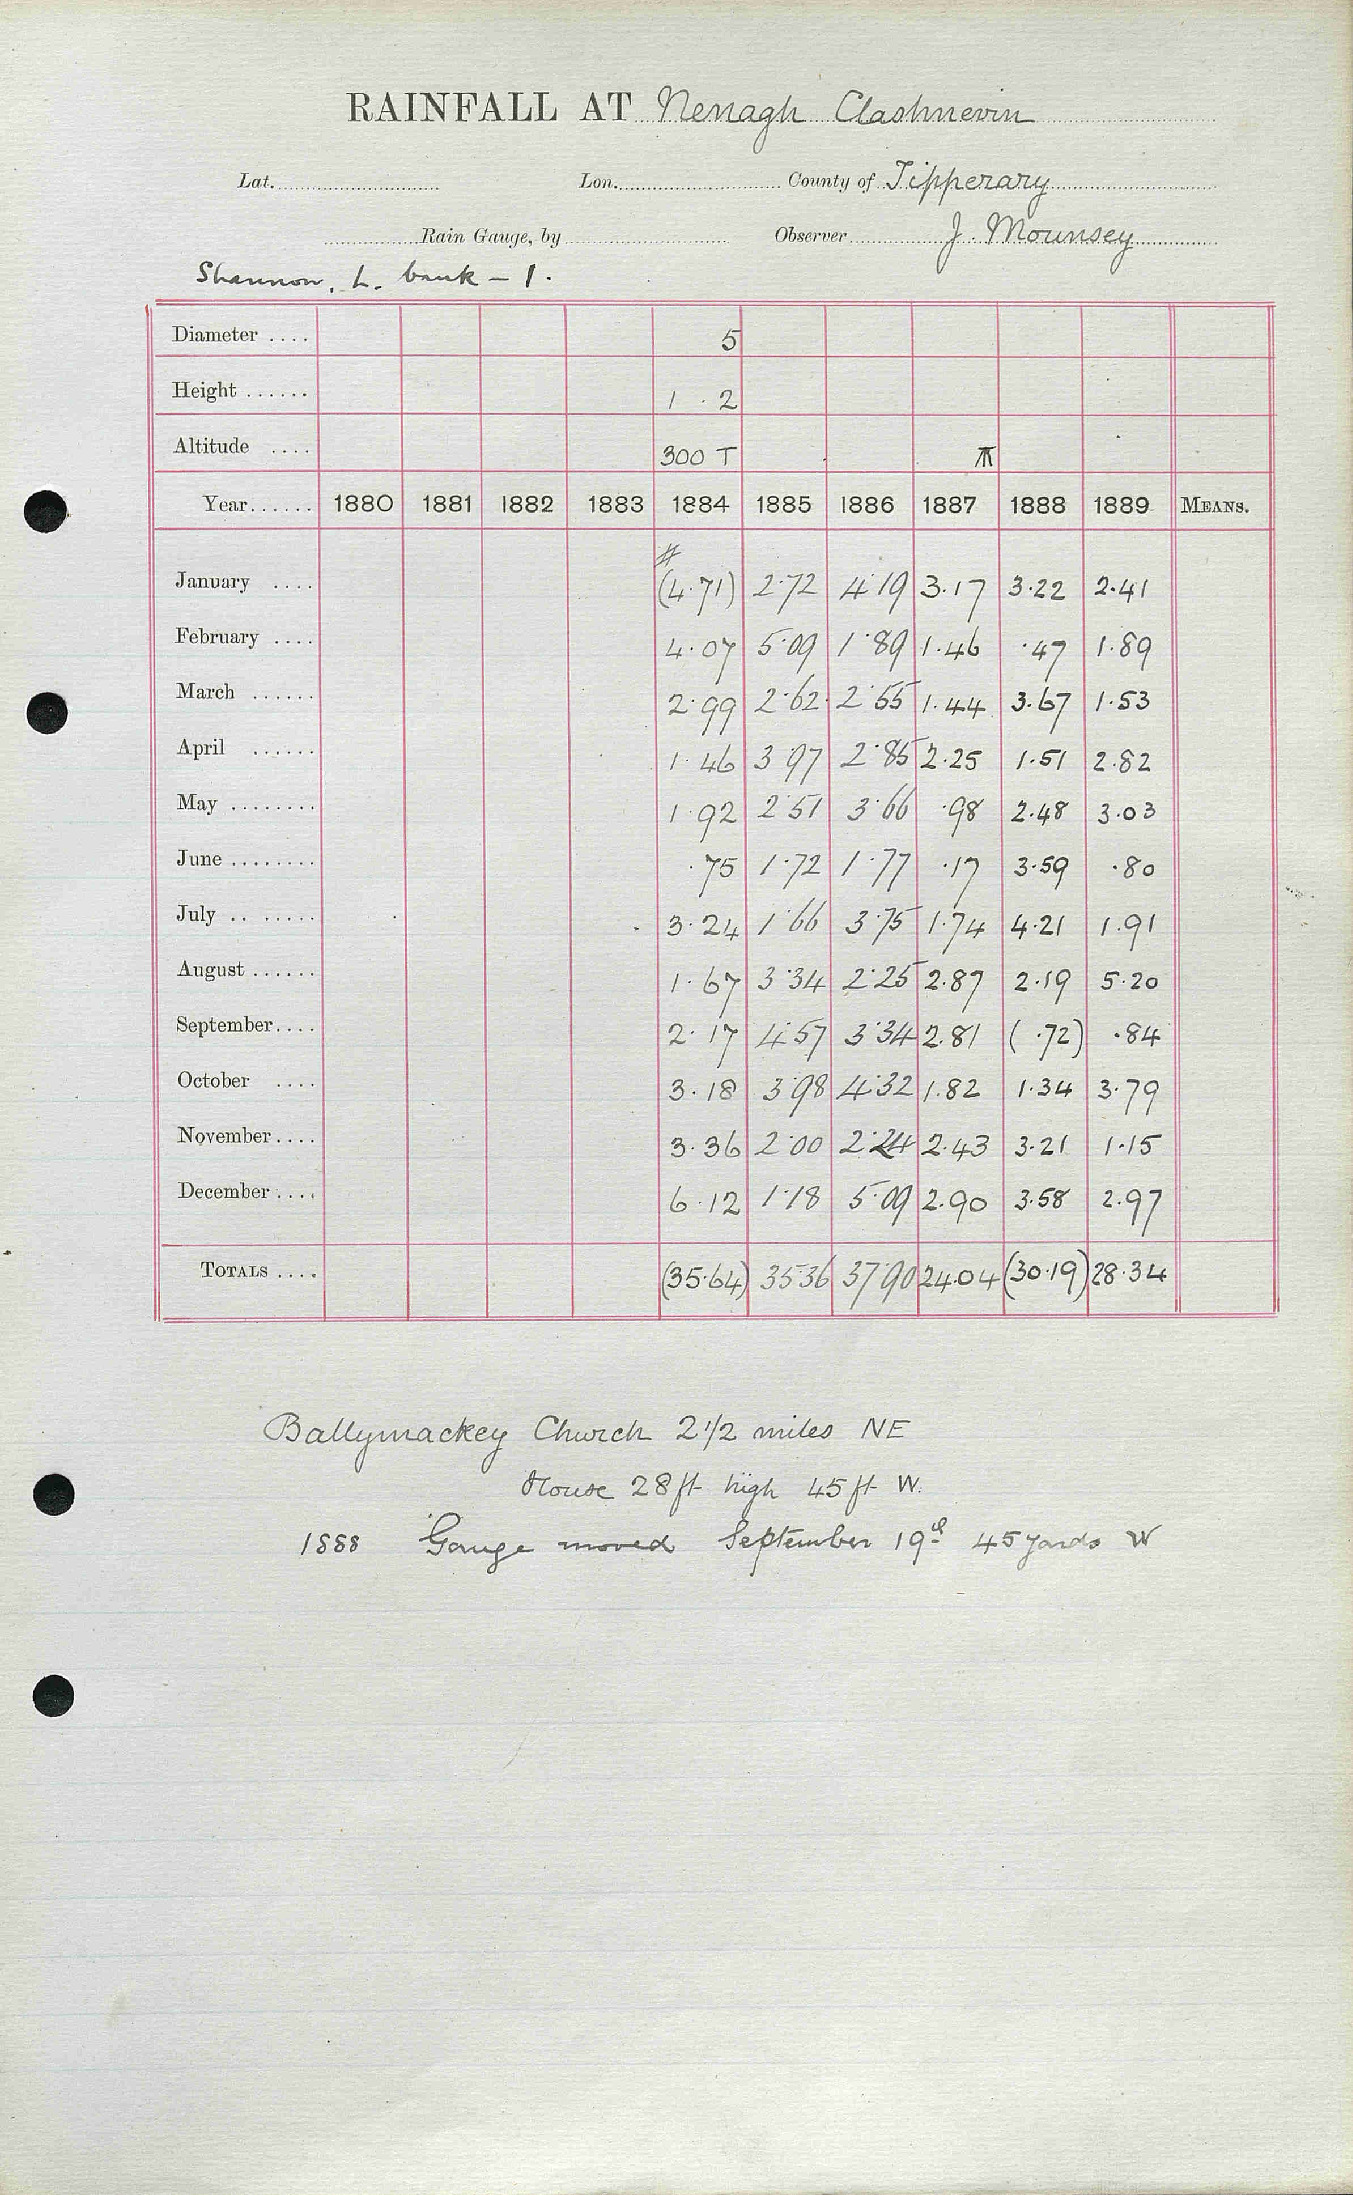 RAINFALL AT Nenagh Clashnevin
Lat. Lon. County of Tipperary
Rain Gauge, by Observer J. Mounsey
Shannon, L. bank – 1.
Diameter .... 5
Height ...... 1 . 2
Altitude .... 300 T
Year...... 1880 1881 1882 1883 1884 1885 1886 1887 1888 1889 MEANS.
#
January .... (4.71) 2.72 4.19 3.17 3.22 2.41
February .... 4.07 5.09 1.89 1.46 .47 1.89
March ...... 2.99 2.62 2.55 1.44 3.67 1.53
April ...... 1.46 3.97 2.85 2.25 1.51 2.82
May ........ 1.92 2.51 3.66 .98 2.48 3.03
June ........ .75 1.72 1.77 .17 3.59 .80
July .. ..... 3.24 1.66 3.75 1.74 4.21 1.91
August ...... 1.67 3.34 2.25 2.87 2.19 5.20
September.... 2.17 4.57 3.34 2.81 (.72) .84
October .... 3.18 3.98 4.32 1.82 1.34 3.79
November.... 3.36 2.00 2.24 2.43 3.21 1.15
December.... 6.12 1.18 5.09 2.90 3.58 2.97
TOTALS .... (35.64) 35.36 37.90 24.04 (30.19) 28.34
Ballymackey Church 2 1/2 miles NE
House 28 ft high 45 ft W.
1888 Gauge moved September 19th 45 yards W